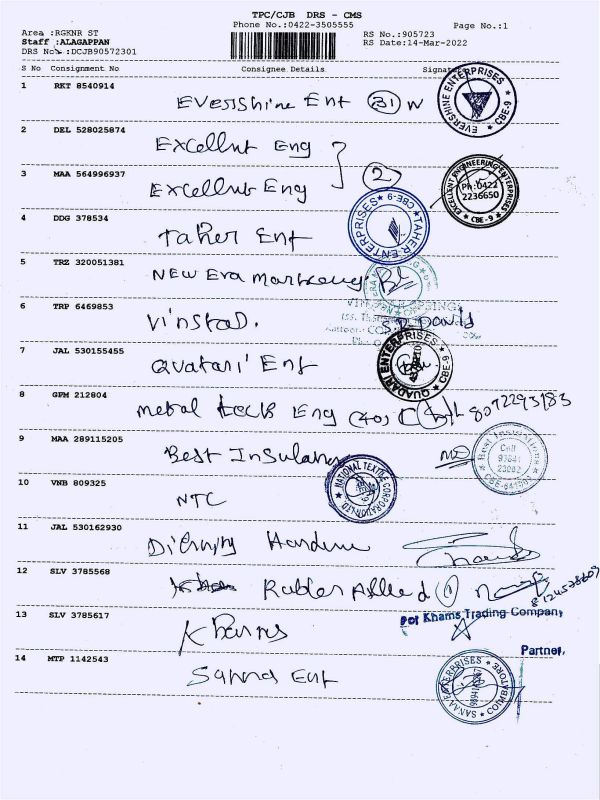 TPC/CJB DRS - CMS
Phone No.:0422-3505555
Page No.:1
Area :RGKNR ST
RS No.:905723
Staff :ALAGAPPAN
RS Date:14-Mar-2022
DRS No.:DCJB90572301
S No Consignment No Consignee Details Signature
1 RKT 8540914
Evershine Ent 31 N
EVERSHINE ENTERPRISES CBE-9
2 DEL 528025874
Excellnt Eng
3 MAA 564996937
Excellnt Eng 2
EXCELLENT ENGINEERING ENTERPRISES CBE-9
Ph:0422
2236650
4 DDG 378534
Taher Ent
TAHER ENTERPRISES CBE-9
5 TRZ 320051381
New Era
6 TRP 6469853
Vinstad.
S.P. David
7 JAL 530155455
Quatari Ent
QUADARI ENTERPRISES CBE-9
8 GPM 212804
Metal tech Eng 8072293183
9 MAA 289115205
Best Insulation
Best Insulations
Cell
CBE-641
10 VNB 809325
NTC
NATIONAL TEXTILE CORPORATION LTD
11 JAL 530162930
12 SLV 3785568
Rubber Allied 1
8124578609
13 SLV 3785617
Khams
For Khams Trading Company
Partner.
14 MTP 1142543
Sanna Ent
SANAA ENTERPRISES COIMBATORE